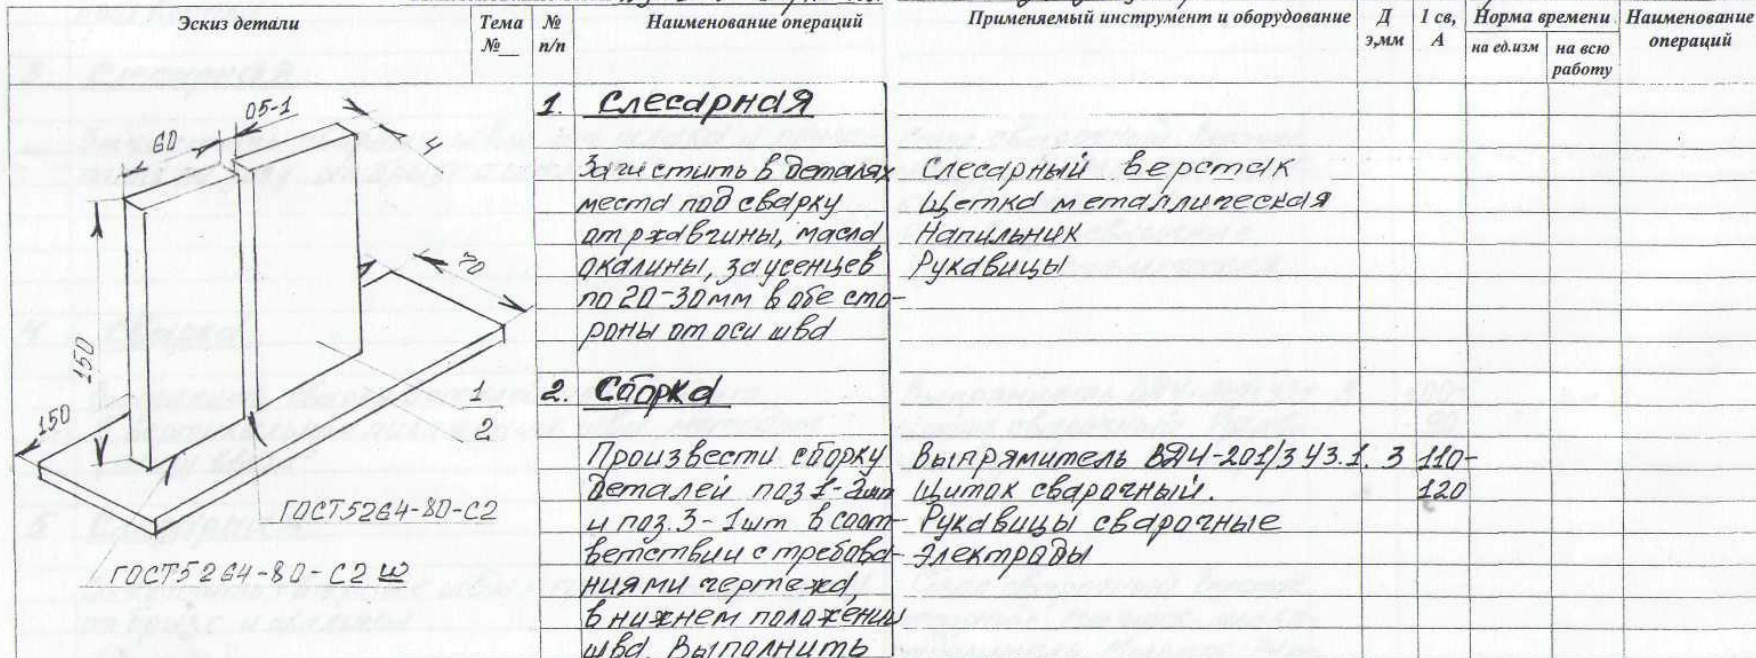 Эскиз детали
Тема №__
№ п/п
Наименование операций
Применяемый инструмент и оборудование
Д э,мм
I св, А
Норма времени
на ед.изм
на всю работу
Наименование операций
05-1
60
4
70
150
150
1
2
ГОСТ5264-80-С2
ГОСТ5264-80-С2 ш
1. Слесарная
Зачистить в деталях
места под сварку
от ржавчины, масла
окалины, заусенцев
по 20-30мм в обе сто-
роны от оси шва
Слесарный верстак
Щетка металлическая
Напильник
Рукавицы
2. Сборка
Произвести сборку
деталей поз 1-2шт
и поз.3-1шт в соот-
ветствии с требова-
ниями чертежа,
в нижнем положении
шва. Выполнить
Выпрямитель ВДЧ-201/3 У3.1. 3 110-
Щиток сварочный. 120
Рукавицы сварочные
Электроды